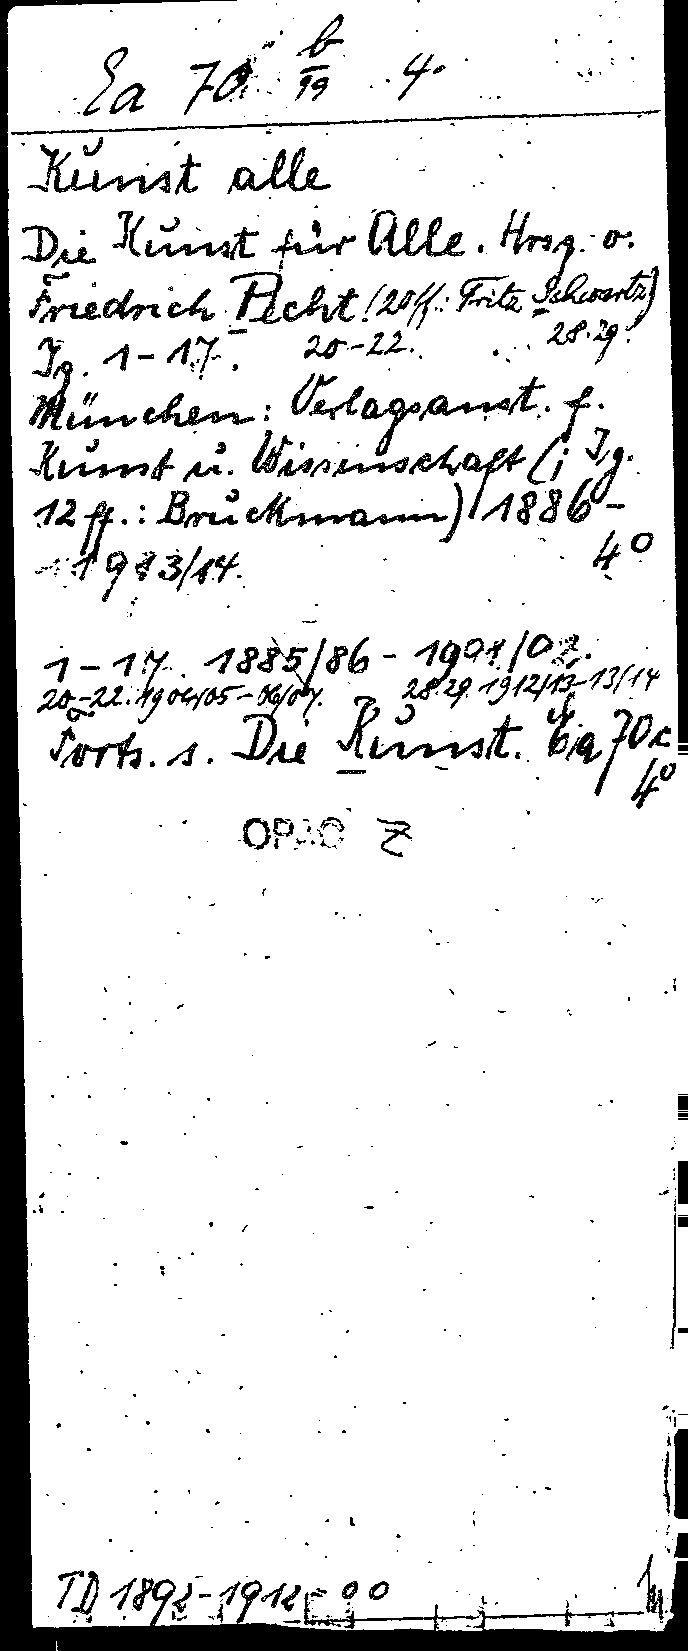 Ea 70 b/99 4°
Kunst alle
Die Kunst für Alle. Hrsg. v.
Friedrich Pecht (20ff.: Fritz Schwartz)
Jg. 1-17. 20-22. 28.29.
München: Verlagsanst. f.
Kunst u. Wissenschaft (; Jg.
12 ff.: Bruckmann) 1886-
1913/14. 4°
1-17. 1885/86-1901/02.
20-22. 1904/05-06/07. 28.29. 1912/13-13/14
Forts. s. Die Kunst. Ea 70c
4°
OPAC Z
TD 1892-1912